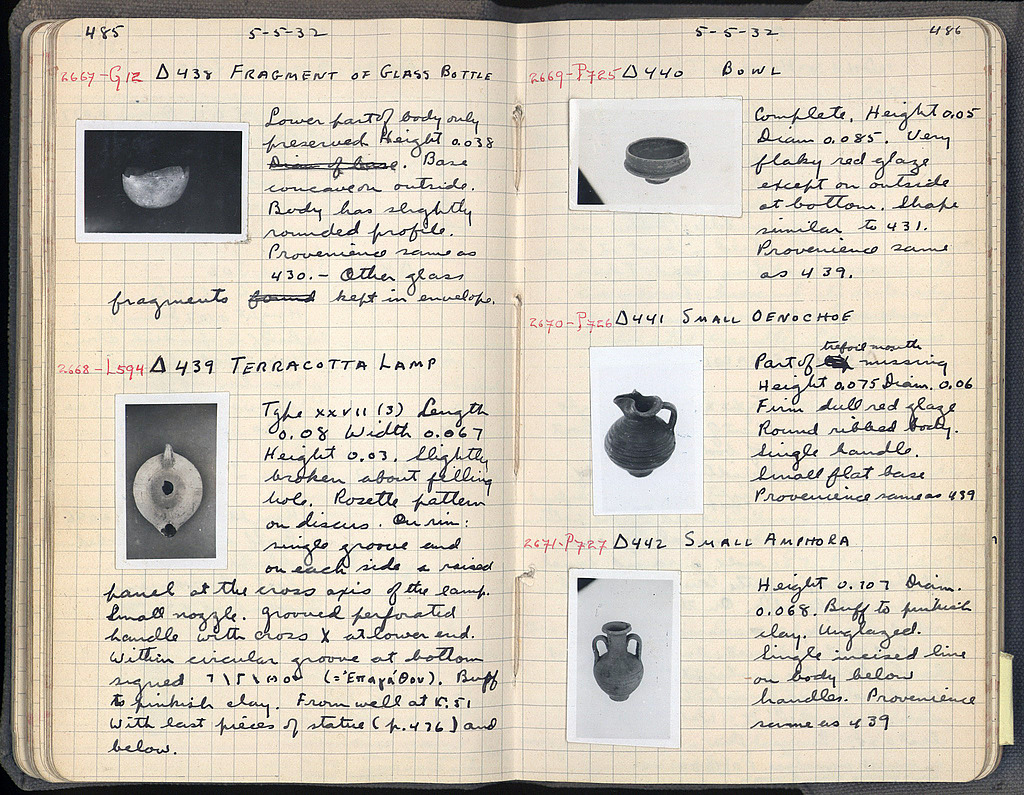 485 5-5-32
2667-G12 Δ438 FRAGMENT OF GLASS BOTTLE
Lower part of body only
preserved Height 0.038
Diam of base. Base
concave on outside.
Body has slightly
rounded profile.
Provenience same as
430. - Other glass
fragments found kept in envelope.
2668-L594 Δ 439 TERRACOTTA LAMP
Type XXVII (3) Length
0.08 Width 0.067
Height 0.03. Slightly
broken about filling
hole. Rosette pattern
on discus. On rim:
single groove and
on each side a raised
panel at the cross axis of the lamp.
Small nozzle. Grooved perforated
handle with cross X at lower end.
Within circular groove at bottom
signed (=Ἐπαγάθου). Buff
to pinkish clay. From well at
With last pieces of statue (p. 476) and
below.
5-5-32 486
2669-P725 Δ440 BOWL
Complete, Height 0.05
Diam 0.085. Very
flaky red glaze
except on outside
at bottom. Shape
similar to 431.
Provenience same
as 439.
2670-P726 Δ441 SMALL OENOCHOE
trefoil mouth
Part of missing
Height 0.075 Diam. 0.06
Firm dull red glaze
Round ribbed body.
Single handle.
Small flat base
Provenience same as 439
2671-P727 Δ442 SMALL AMPHORA
Height 0.107 Diam.
0.068. Buff to pinkish
clay. Unglazed.
Single incised line
on body below
handles. Provenience
same as 439